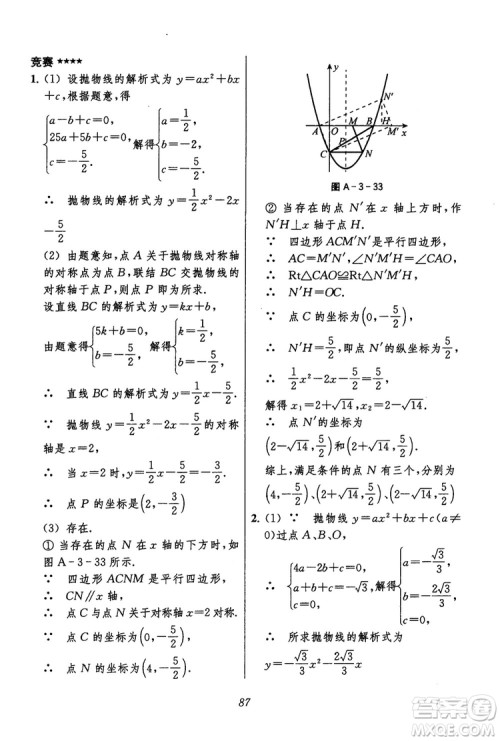 竞赛 ★★★★
1. (1) 设抛物线的解析式为 y=ax²+bx
+c,根据题意,得
{a-b+c=0, 25a+5b+c=0, c=-5/2, 解得 {a=1/2, b=-2, c=-5/2.
∴ 抛物线的解析式为 y=1/2x²-2x
-5/2.
(2) 由题意知,点 A 关于抛物线对称轴
的对称点为点 B,联结 BC 交抛物线的对
称轴于点 P,则点 P 即为所求.
设直线 BC 的解析式为 y=kx+b,
由题意得 {5k+b=0, b=-5/2, 解得 {k=1/2, b=-5/2.
∴ 直线 BC 的解析式为 y=1/2x-5/2.
∵ 抛物线 y=1/2x²-2x-5/2 的对称
轴是 x=2,
∴ 当 x=2 时,y=1/2x-5/2=-3/2.
∴ 点 P 的坐标为(2,-3/2).
(3) 存在.
① 当存在的点 N 在 x 轴的下方时,如
图 A-3-33 所示.
∵ 四边形 ACNM 是平行四边形,
∴ CN∥x 轴.
∴ 点 C 与点 N 关于对称轴 x=2 对称.
∵ 点 C 的坐标为(0,-5/2),
∴ 点 N 的坐标为(4,-5/2).
y N′
A O M B H
P M′ x
C N
图 A-3-33
② 当存在的点 N′在 x 轴上方时,作
N′H⊥x 轴于点 H.
∵ 四边形 ACM′N′是平行四边形,
∴ AC=M′N′,∠N′M′H=∠CAO.
∴ Rt△CAO≌Rt△N′M′H.
∴ N′H=OC.
∵ 点 C 的坐标为(0,-5/2),
∴ N′H=5/2,即点 N′的纵坐标为5/2.
∴ 1/2x²-2x-5/2=5/2.
解得 x₁=2+√14,x₂=2-√14.
∴ 点 N′的坐标为
(2-√14,5/2)和(2+√14,5/2).
综上,满足条件的点 N 有三个,分别为
(4,-5/2)、(2+√14,5/2)、(2-√14,5/2).
2. (1) ∵ 抛物线 y=ax²+bx+c(a≠
0)过点 A、B、O,
∴ {4a-2b+c=0, a+b+c=-√3, c=0. 解得 {a=-√3/3, b=-2√3/3, c=0.
∴ 所求抛物线的解析式为
y=-√3/3x²-2√3/3x.
87